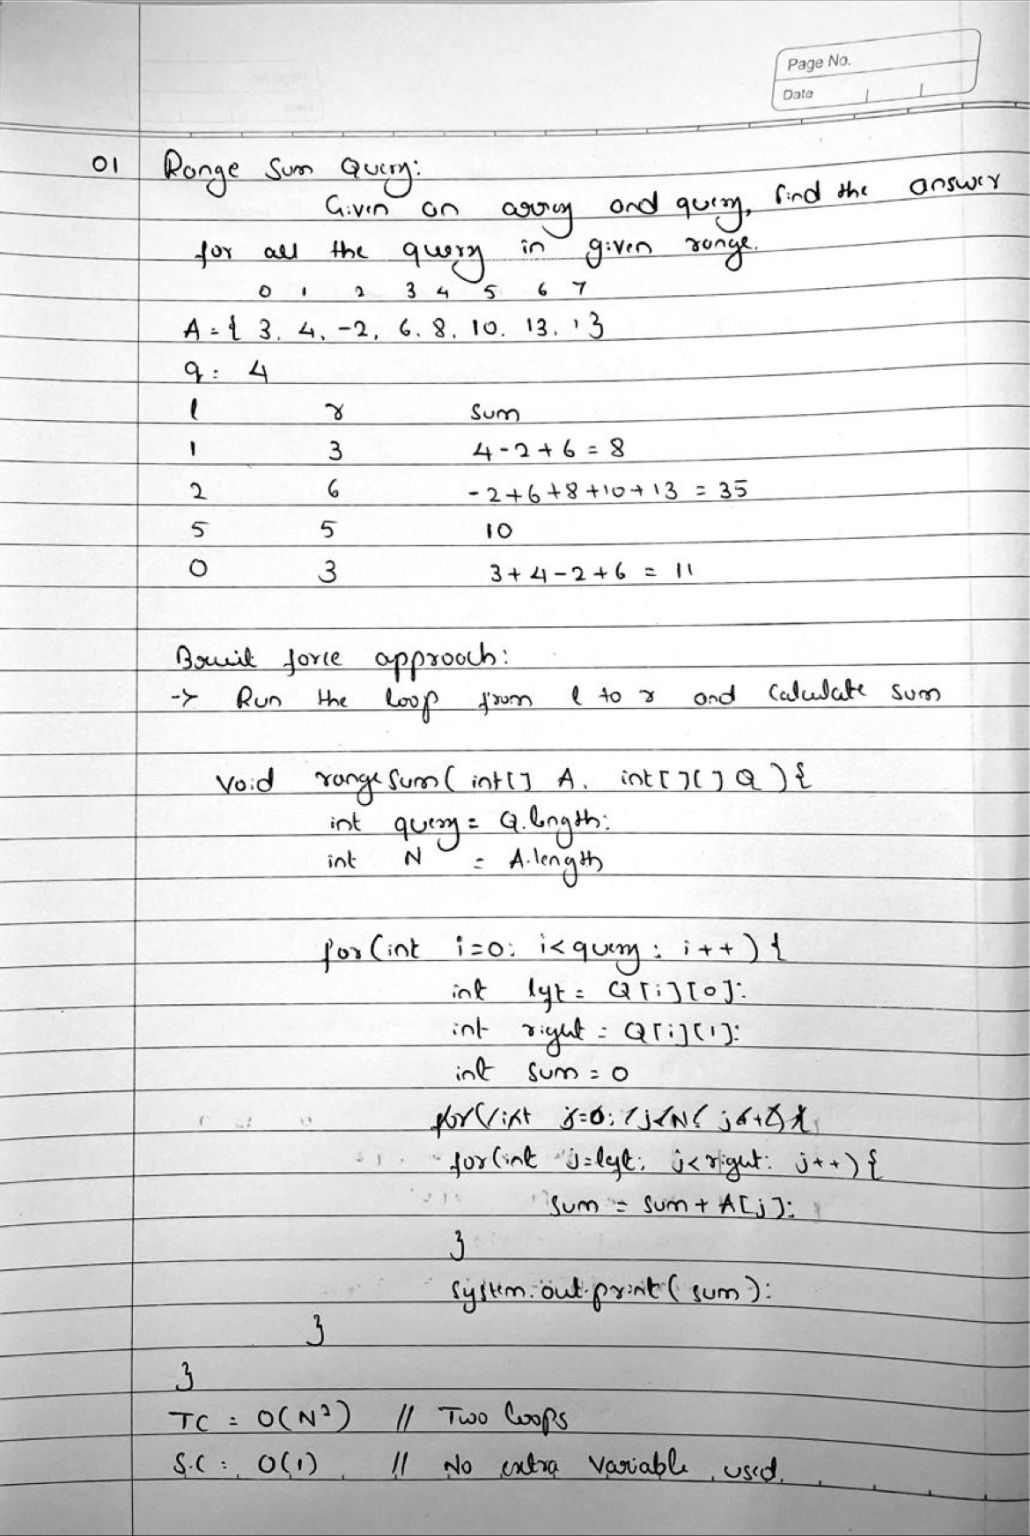 Page No.
Date
01 Range Sum Query:
Given an array and query, find the answer
for all the query in given range.
0 1 2 3 4 5 6 7
A = { 3, 4, -2, 6, 8, 10, 13, 1 }
q: 4
l r sum
1 3 4-2+6 = 8
2 6 -2+6+8+10+13 = 35
5 5 10
0 3 3+4-2+6 = 11
force approach:
-> Run the loop from l to r and calculate sum
Void rangeSum( int[] A, int[][] Q ){
int query = Q.length;
int N = A.length
for(int i=0; i<query; i++){
int left = Q[i][0];
int right = Q[i][1];
int sum = 0
for(int j=0; j<N; j++){
for(int j=left; j<right; j++){
sum = sum + A[j];
}
System.out.print(sum);
}
}
TC = O(N²) // Two loops
S.C: O(1) // No extra variable used.